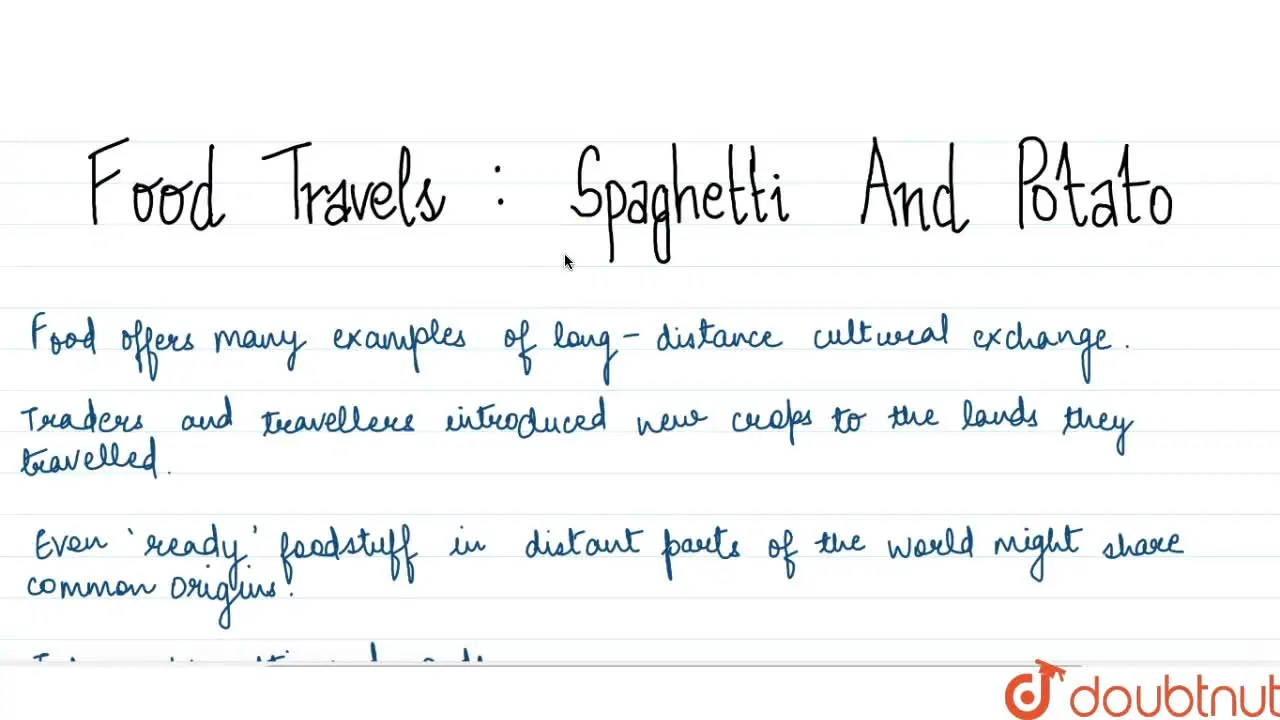 Food Travels : Spaghetti And Potato
Food offers many examples of long-distance cultural exchange.
Traders and travellers introduced new crops to the lands they
travelled.
Even 'ready' foodstuff in distant parts of the world might share
common origins.
doubtnut